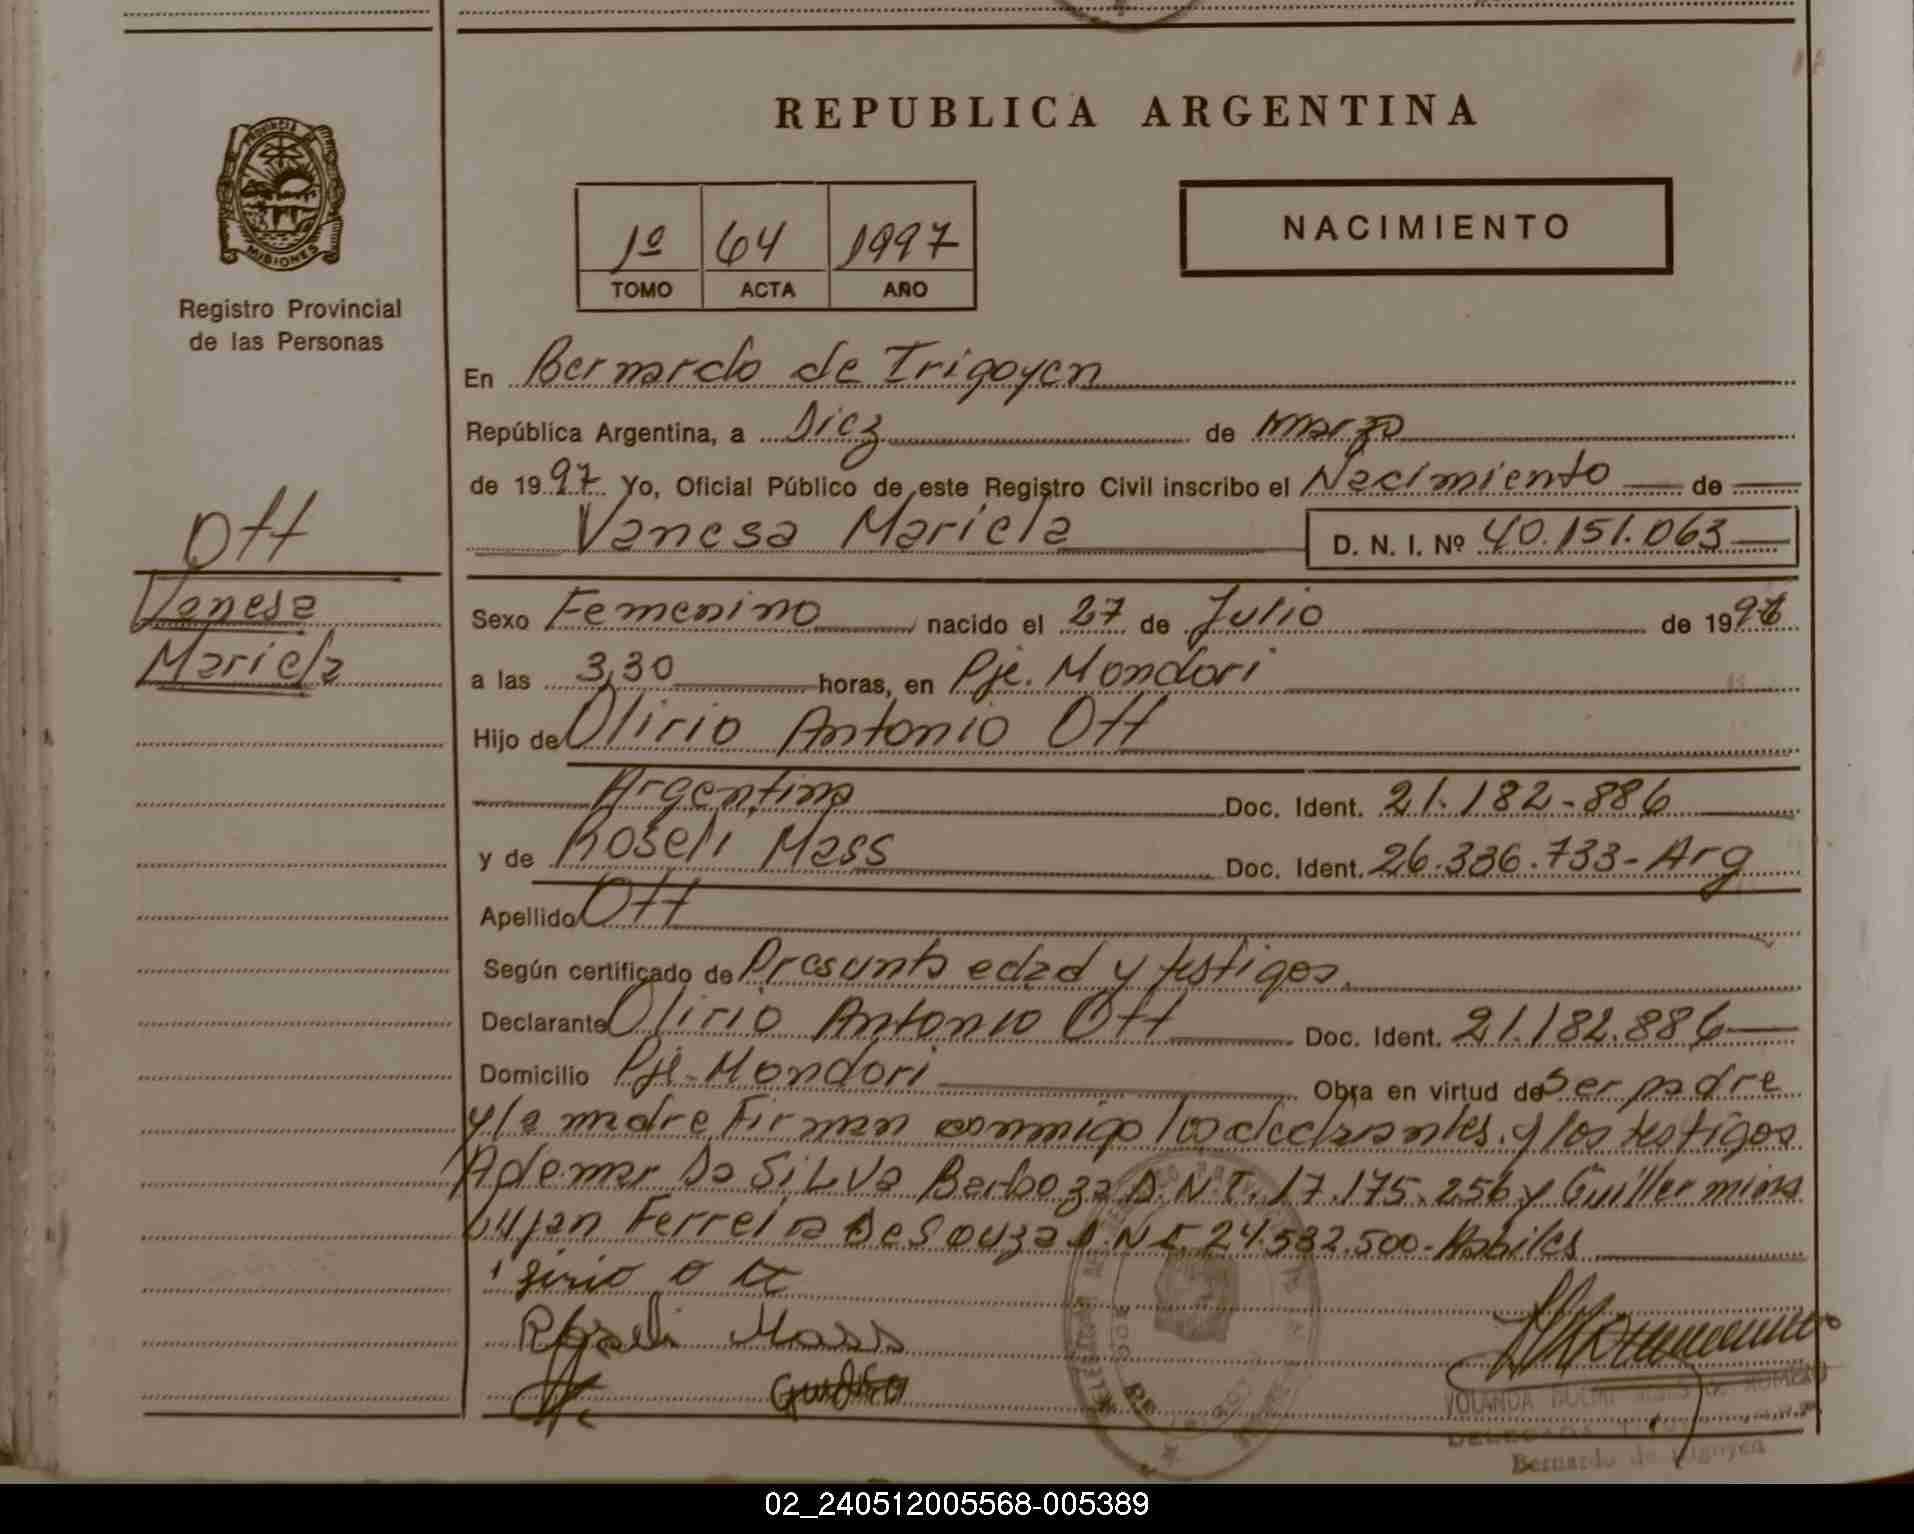 REPUBLICA ARGENTINA
PROVINCIA DE
MISIONES
Registro Provincial
de las Personas
1º 64 1997
TOMO ACTA AÑO
NACIMIENTO
En Bernardo de Irigoyen
República Argentina, a Diez de Marzo
de 1997 Yo, Oficial Público de este Registro Civil inscribo el Nacimiento de
Vanesa Mariela D. N. I. Nº 40.151.063
Ott
Vanesa
Mariela
Sexo Femenino nacido el 27 de Julio de 1996
a las 3,30 horas, en Pje. Mondori
Hijo de Olirio Antonio Ott
Argentina Doc. Ident. 21.182-886
y de Roseli Mass Doc. Ident. 26.336.733-Arg
Apellido Ott
Según certificado de Presunta edad y testigos.
Declarante Olirio Antonio Ott Doc. Ident. 21.182.886
Domicilio Pje-Mondori Obra en virtud de ser padre
y la madre Firman conmigo los declarantes. y los testigos
Ademar Da SiLVa Barboza D.N.I. 17.175.256 y Guillermina
Lujan Ferreira De Souza D.N.I 24.532.500-Habiles
Roseli Mass
YOLANDA
Bernardo de Irigoyen
02_240512005568-005389